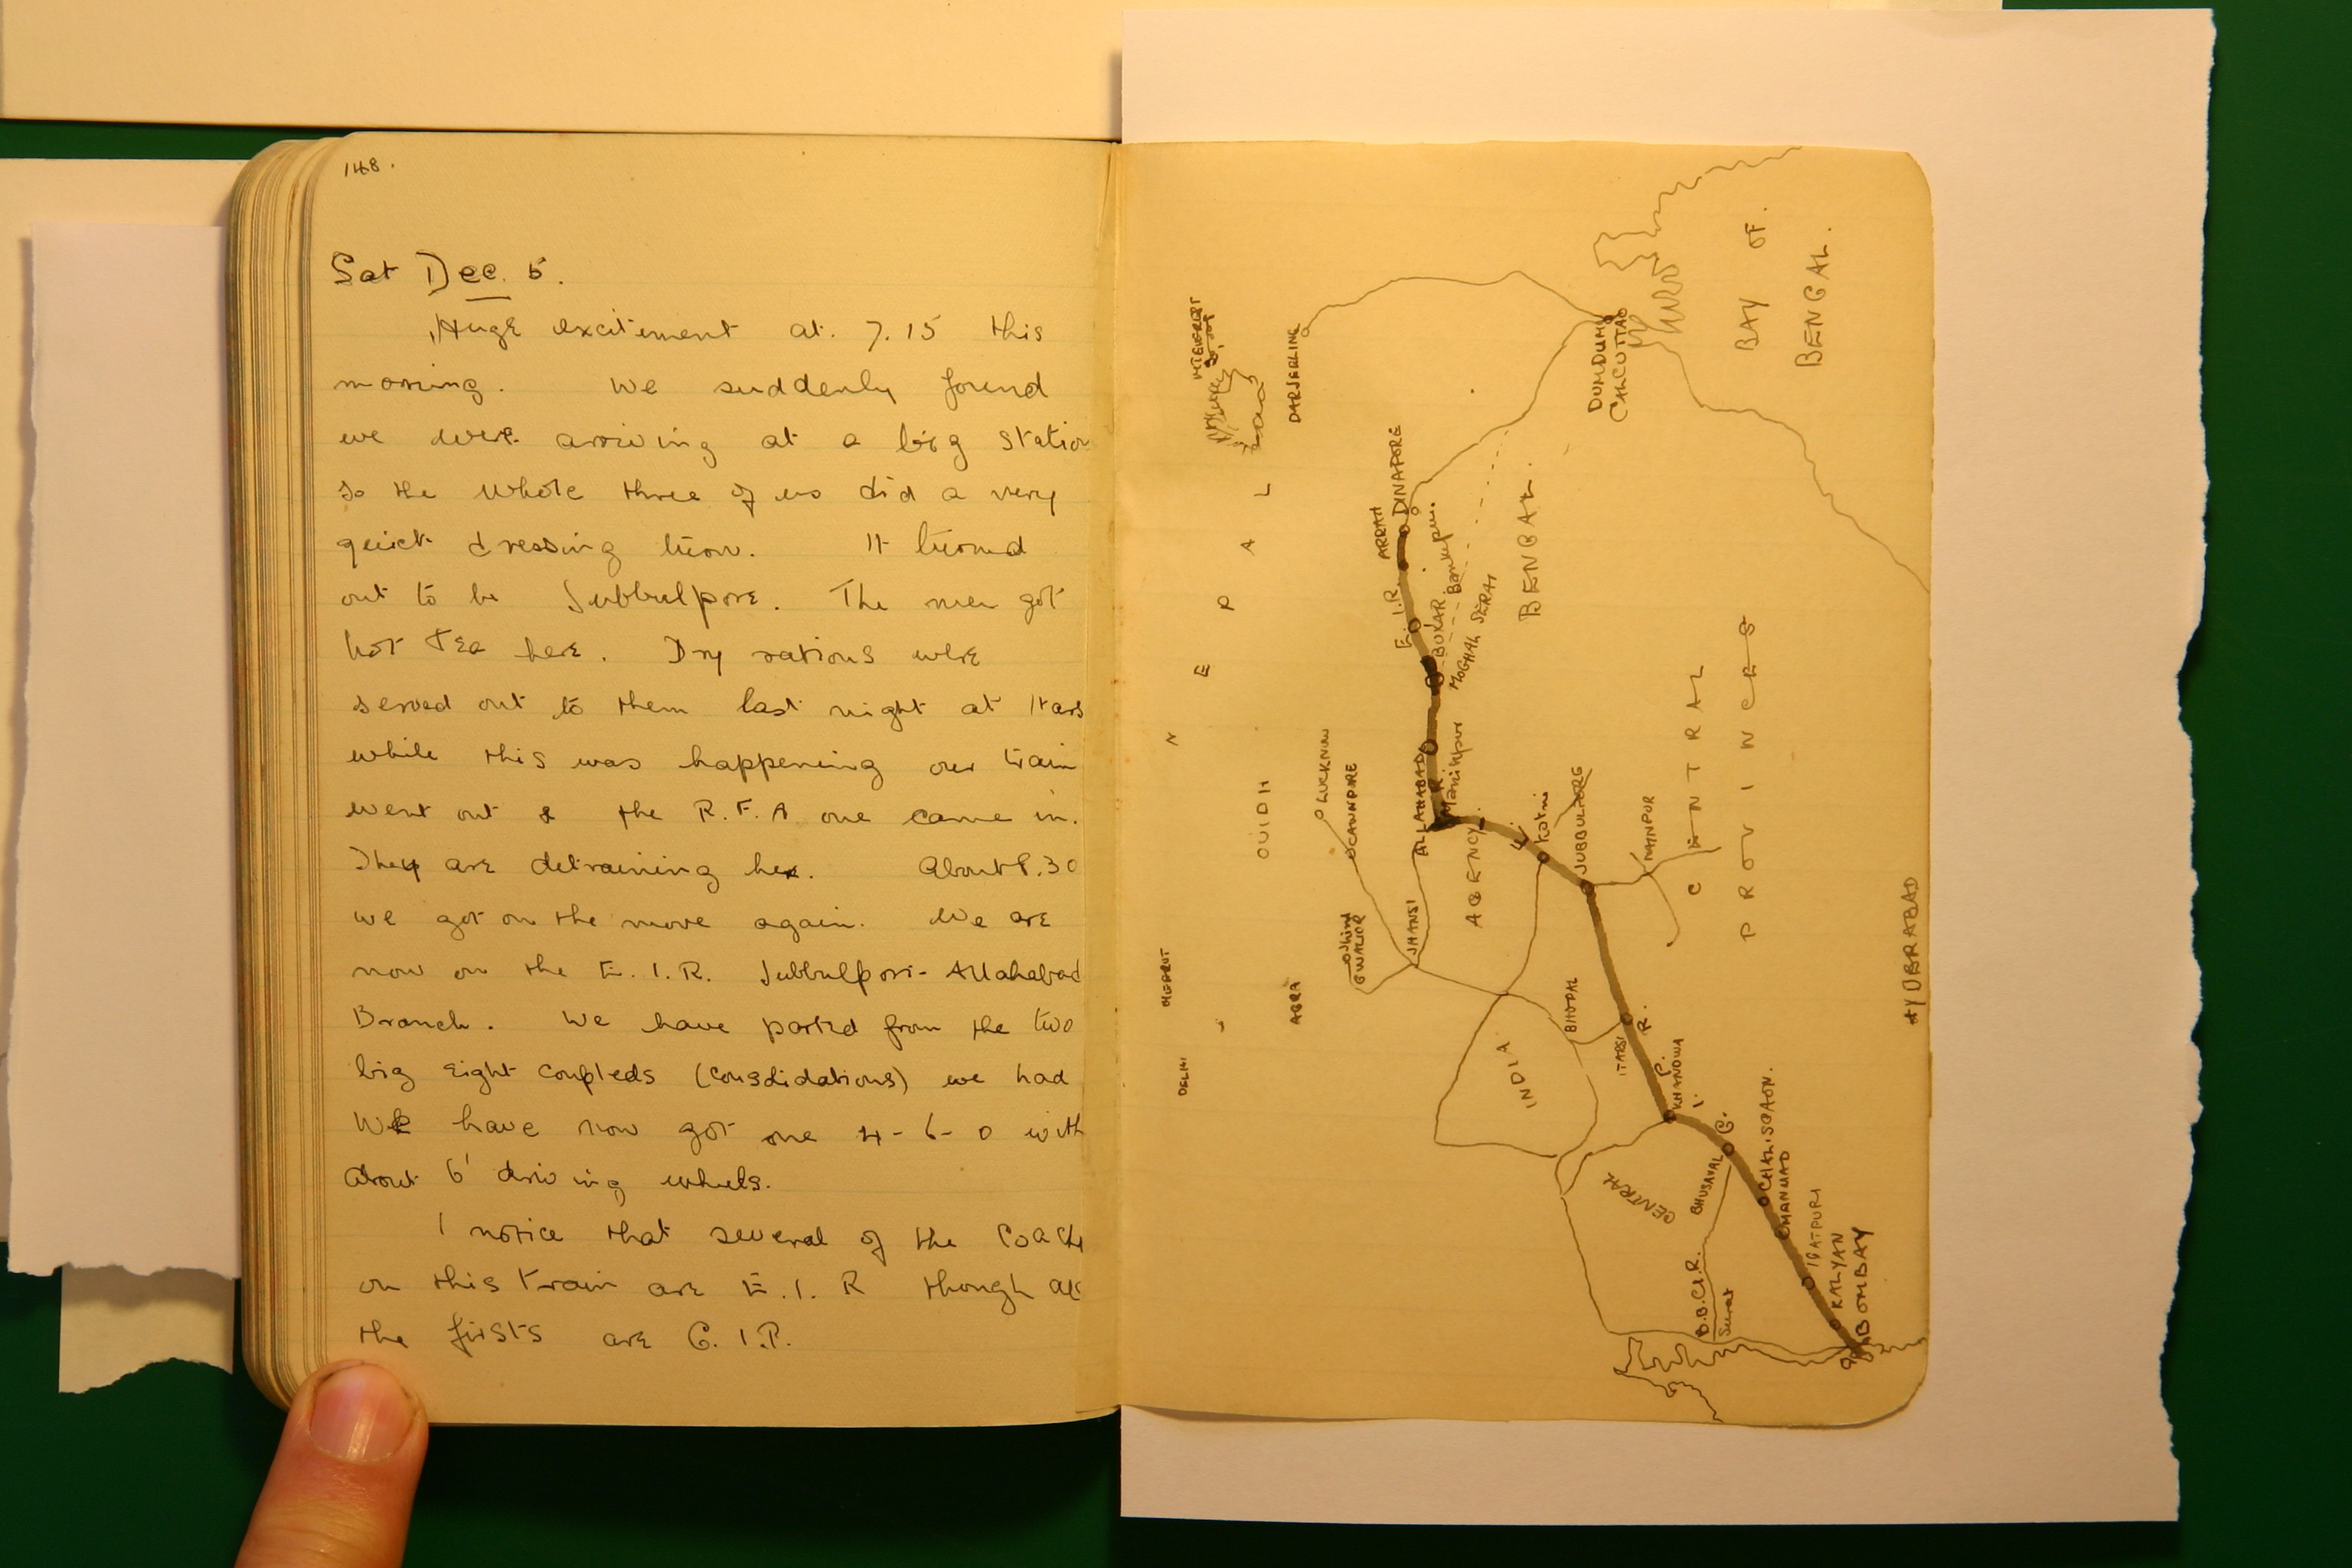 148.
Sat Dec. 5.
Huge excitement at 7.15 this
morning. We suddenly found
we were arriving at a big statio
so the whole three of us did a very
quick dressing turn. It turned
out to be Jubbulpore. The men got
hot tea here. Dry rations were
served out to them last night at Itars
while this was happening our train
went out & the R.F.A one came in.
They are detraining here. About 8.30
we got on the move again. We are
now on the E.I.R. Jubbulpore-Allahabad
Branch. We have parted from the two
big eight coupleds (consolidations) we had
We have now got one 4-6-0 with
about 6' driving wheels.
I notice that several of the Coache
on this train are E.I.R though all
the firsts are G.I.P.
MT EVEREST
DARJEELING
NEPAL
DUMDUM
CALCUTTA
BAY OF
BENGAL.
DINAPORE
ARRAH
E.I.R.
BUXAR
Bankipur.
MOGHAL SERAI
BENGAL.
LUCKNOW
CAWNPORE
OUIDH
ALLAHABAD
Manikpur
AGENCY.
Katni
JUBBULPORE
NAINPUR
CENTRAL
PROVINCES
GWALIOR
JHANSI
MEERUT
AGRA
DELHI
BHOPAL
ITARSI
INDIA
CENTRAL
KHANDWA
G. I. P. R.
BHUSAWAL
CHALISGAON.
MANMAD
IGATPURI
KALYAN
BOMBAY
B.B.C.I.R.
Surat
HYDERABAD